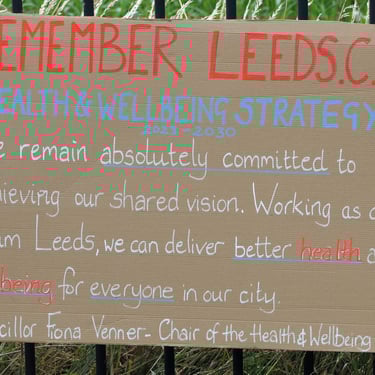 EMEMBER LEEDS.C.
EALTH & WELLBEING STRATEGY
2023-2030
e remain absolutely committed to
hieving our shared vision. Working as a
am Leeds, we can deliver better health a
being for everyone in our city.
cillor Fiona Venner - Chair of the Health & Wellbeing